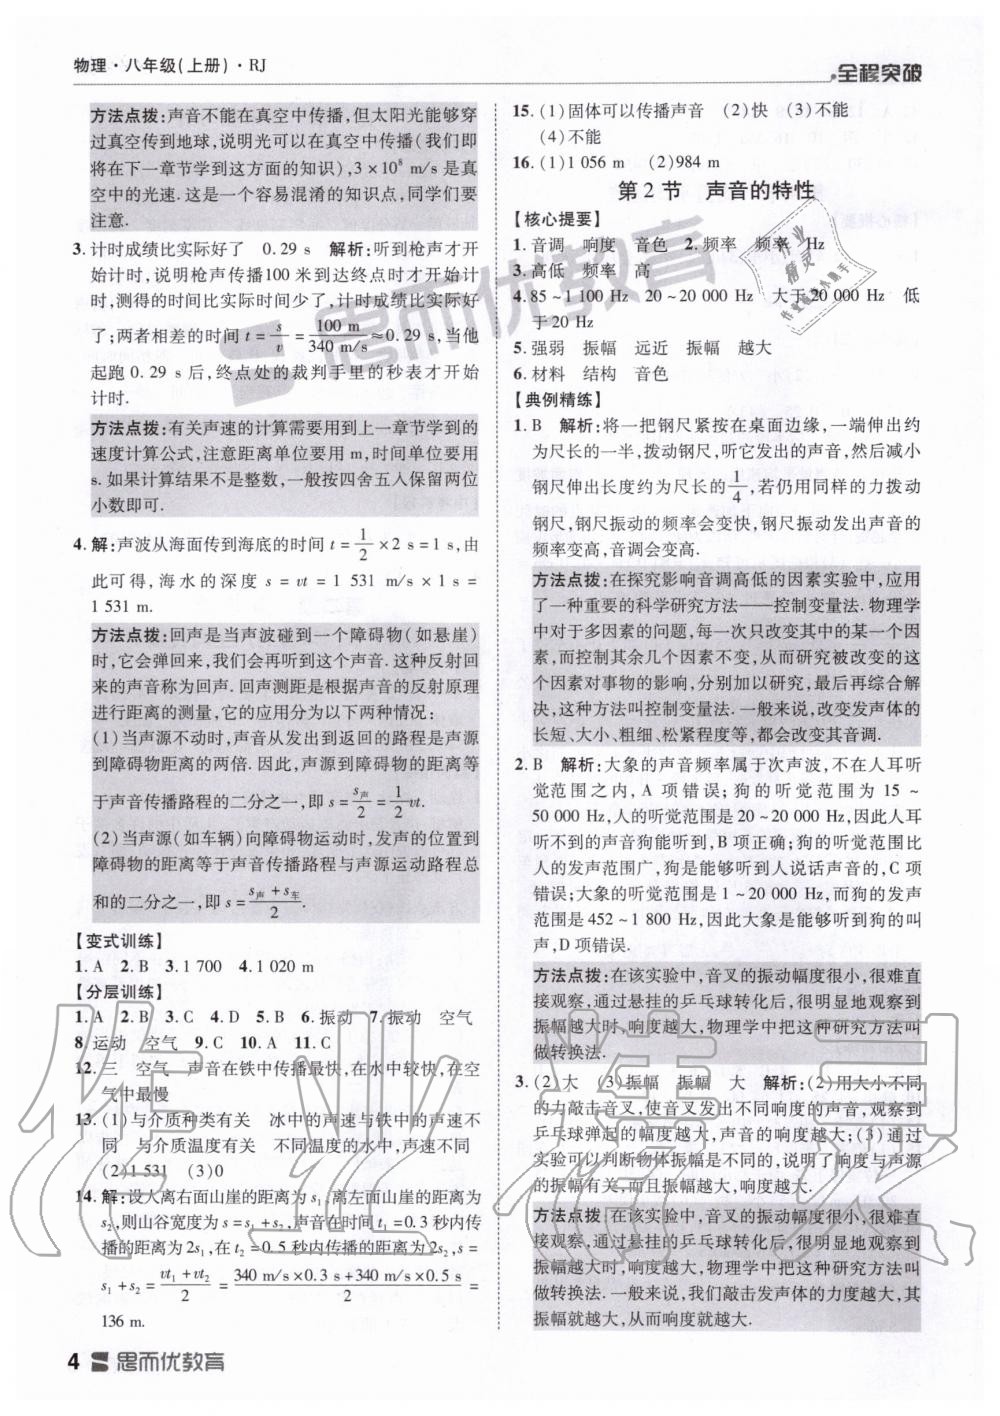 物理·八年级(上册)·RJ
全程突破
方法点拨:声音不能在真空中传播,但太阳光能够穿
过真空传到地球,说明光可以在真空中传播(我们即
将在下一章节学到这方面的知识),3×10⁸ m/s 是真
空中的光速. 这是一个容易混淆的知识点,同学们要
注意.
3. 计时成绩比实际好了 0.29 s 解析:听到枪声才开
始计时,说明枪声传播100 米到达终点时才开始计
时,测得的时间比实际时间少了,计时成绩比实际好
了;两者相差的时间 t = s/v = 100 m/340 m/s ≈0.29 s,当他
起跑 0.29 s 后,终点处的裁判手里的秒表才开始
计时.
方法点拨:有关声速的计算需要用到上一章节学到的
速度计算公式,注意距离单位要用 m,时间单位要用
s. 如果计算结果不是整数,一般按四舍五入保留两位
小数即可.
4. 解:声波从海面传到海底的时间 t = 1/2 ×2 s =1 s,由
此可得,海水的深度 s = vt = 1 531 m/s × 1 s =
1 531 m.
方法点拨:回声是当声波碰到一个障碍物(如悬崖)
时,它会弹回来,我们会再听到这个声音. 这种反射回
来的声音称为回声. 回声测距是根据声音的反射原理
进行距离的测量,它的应用分为以下两种情况:
(1)当声源不动时,声音从发出到返回的路程是声源
到障碍物距离的两倍. 因此,声源到障碍物的距离等
于声音传播路程的二分之一,即 s = s声/2 = 1/2 vt.
(2)当声源(如车辆)向障碍物运动时,发声的位置到
障碍物的距离等于声音传播路程与声源运动路程总
和的二分之一,即 s = (s声 + s车)/2.
【变式训练】
1. A 2. B 3. 1 700 4. 1 020 m
【分层训练】
1. A 2. B 3. C 4. D 5. B 6. 振动 7. 振动 空气
8. 运动 空气 9. C 10. A 11. C
12. 三 空气 声音在铁中传播最快,在水中较快,在空
气中最慢
13. (1)与介质种类有关 冰中的声速与铁中的声速不
同 与介质温度有关 不同温度的水中,声速不同
(2)1 531 (3)0
14. 解:设人离右面山崖的距离为 s₁,离左面山崖的距离为
s₂,则山谷宽度为 s = s₁ + s₂,声音在时间 t₁ =0.3 秒内传
播的距离为 2s₁,在 t₂ =0.5 秒内传播的距离为 2s₂,s =
s₁ + s₂ = (vt₁ + vt₂)/2 = (340 m/s×0.3 s +340 m/s×0.5 s)/2 =
136 m.
15. (1)固体可以传播声音 (2)快 (3)不能
(4)不能
16. (1)1 056 m (2)984 m
第 2 节 声音的特性
【核心提要】
1. 音调 响度 音色 2. 频率 频率 Hz
3. 高低 频率 高
4. 85 ~ 1 100 Hz 20 ~ 20 000 Hz 大于 20 000 Hz 低
于 20 Hz
5. 强弱 振幅 远近 振幅 越大
6. 材料 结构 音色
【典例精练】
1. B 解析:将一把钢尺紧按在桌面边缘,一端伸出约
为尺长的一半,拨动钢尺,听它发出的声音,然后减小
钢尺伸出长度约为尺长的 1/4,若仍用同样的力拨动
钢尺,钢尺振动的频率会变快,钢尺振动发出声音的
频率变高,音调会变高.
方法点拨:在探究影响音调高低的因素实验中,应用
了一种重要的科学研究方法——控制变量法. 物理学
中对于多因素的问题,每一次只改变其中的某一个因
素,而控制其余几个因素不变,从而研究被改变的这
个因素对事物的影响,分别加以研究,最后再综合解
决,这种方法叫控制变量法. 一般来说,改变发声体的
长短、大小、粗细、松紧程度等,都会改变其音调.
2. B 解析:大象的声音频率属于次声波,不在人耳听
觉范围之内,A 项错误;狗的听觉范围为 15 ~
50 000 Hz,人的听觉范围是 20 ~ 20 000 Hz,因此人耳
听不到的声音狗能听到,B 项正确;狗的听觉范围比
人的发声范围广,是能够听到人说话声音的,C 项
错误;大象的听觉范围是 1 ~ 20 000 Hz,而狗的发声
范围是 452 ~ 1 800 Hz,因此大象是能够听到狗的叫
声,D 项错误.
方法点拨:在该实验中,音叉的振动幅度很小,很难直
接观察,通过悬挂的乒乓球转化后,很明显地观察到
振幅越大时,响度越大,物理学中把这种研究方法叫
做转换法.
3. (2)大 (3)振幅 振幅 大 解析:(2)用大小不同
的力敲击音叉,使音叉发出不同响度的声音,观察到
乒乓球弹起的幅度越大,声音的响度越大;(3)通过
实验可以判断物体振幅是不同的,说明了响度与声源
的振幅有关,而且振幅越大,响度越大.
方法点拨:在该实验中,音叉的振动幅度很小,很难直
接观察,通过悬挂的乒乓球转化后,很明显地观察到
振幅越大时,响度越大,物理学中把这种研究方法叫
做转换法. 一般来说,我们敲击发声体的力度越大,其
振幅就越大,从而响度就越大.
4 思而优教育
思而优教育
作业精灵